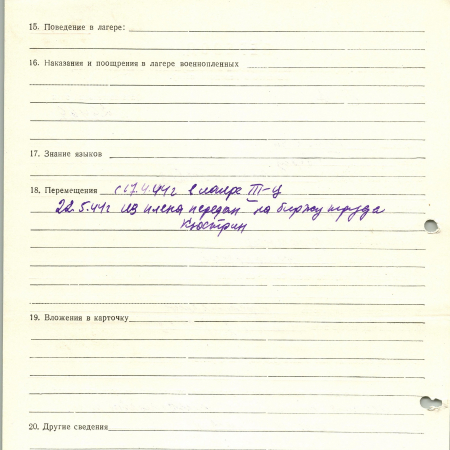 15. Поведение в лагере:
16. Наказания и поощрения в лагере военнопленных
17. Знание языков
18. Перемещения с 17.4.44г в лагере III-Ц
22.5.44г из плена передан на биржу труда
Кюстрин
19. Вложения в карточку
20. Другие сведения